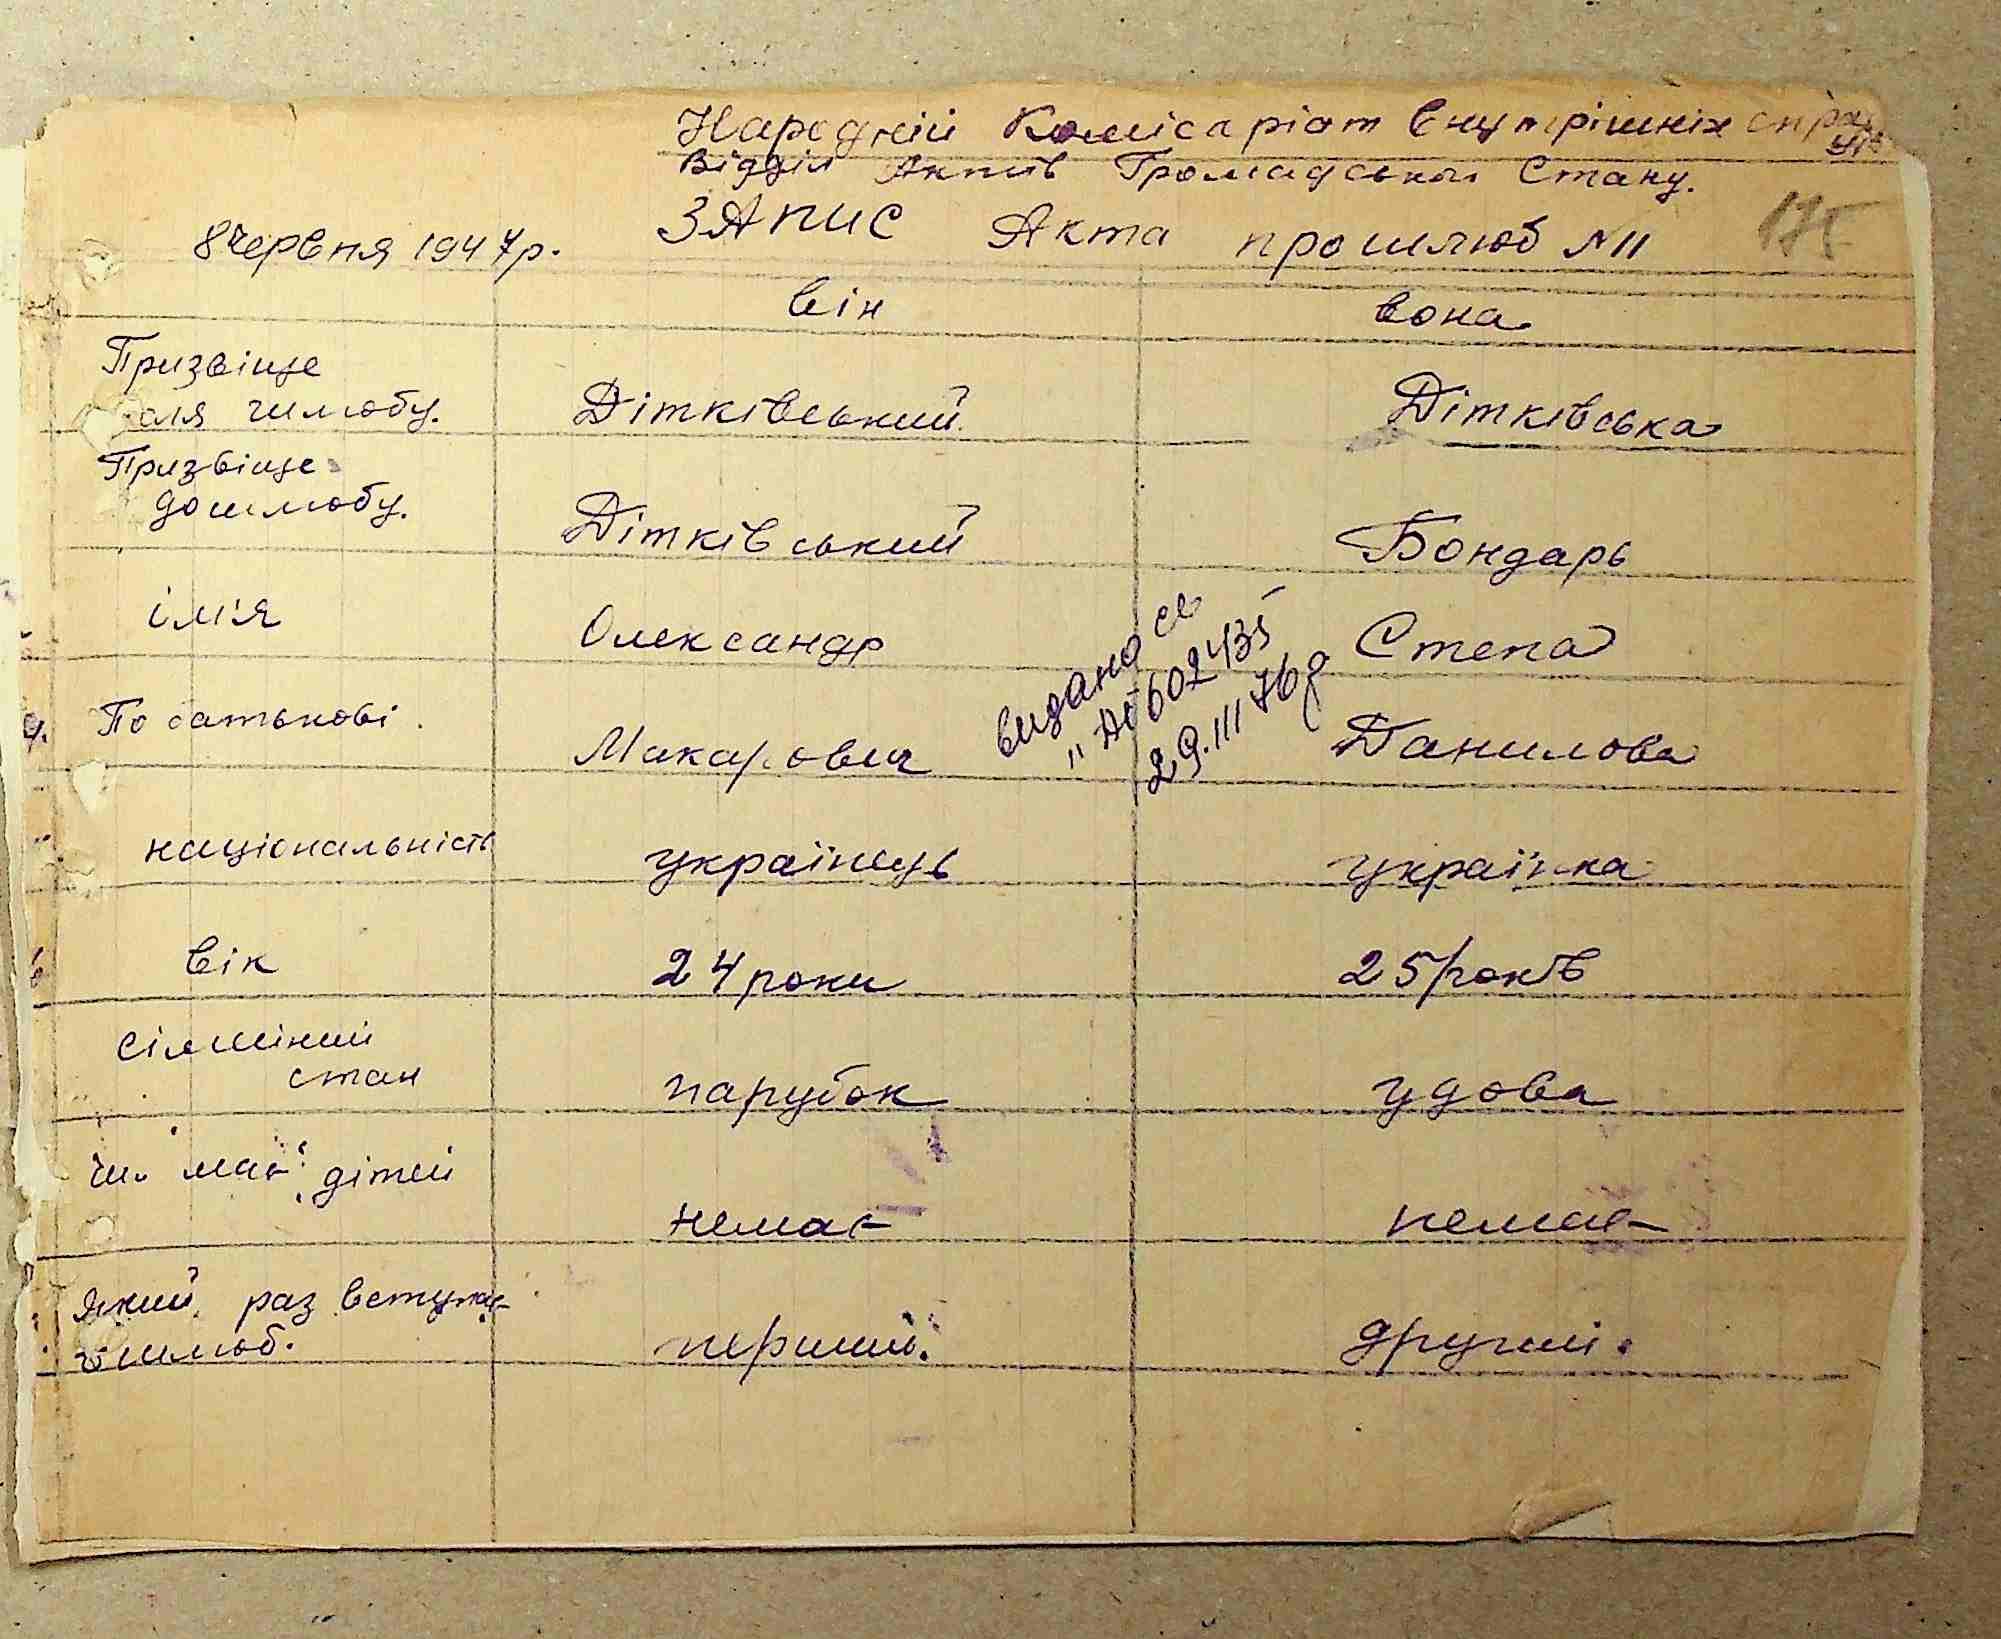 Народній Комісаріат Внутрішніх справ
Відділ Актів Громадського Стану.
8 червня 1947р. ЗАпис Акта про шлюб №11 175
він вона
Призвіще
шлюбу. Дітківський Дітківська
Призвіще
до шлюбу. Дітківський Бондарь
ім'я Олександр Степа
По батькові Макарович Данилова
видано св
29.III 76р
національність українець українка
вік 24 роки 25 років
сімейний
стан парубок удова
чи має дітей
немає немає
який раз вступає
в шлюб. перший. другий.